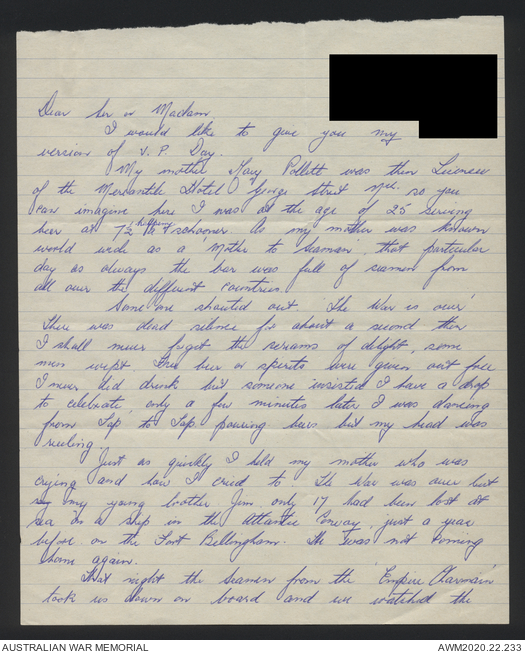 Dear Sir or Madam
I would like to give you my
version of V. P. Day.
My mother Mary Pollett was then Licensee
of the Mercantile Hotel George Street so you
can imagine, here I was at the age of 25 serving
beer at 7½ halfpenny a schooner. As my mother was known
world wide as a 'Mother to Seamen', that particular
day as always the bar was full of seamen from
all over the different countries.
Some one shouted out 'The War is over'
There was dead silence for about a second then
I shall never forget the screams of delight, some
men wept. Free beer or spirits were given out free
I never did drink but someone insisted I have a drop
to celebrate, only a few minutes later I was dancing
from Tap to Tap pouring beers but my head was
reeling.
Just as quickly I held my mother who was
crying and how I cried to. The War was over but
my young brother Jim only 17 had been lost at
sea on a ship in the Atlantic Convoy, just a year
before on the Fort Bellingham. He was not coming
home again.
That night the seamen from the 'Empire
took us down on board and we watched the
AUSTRALIAN WAR MEMORIAL
AWM2020.22.233